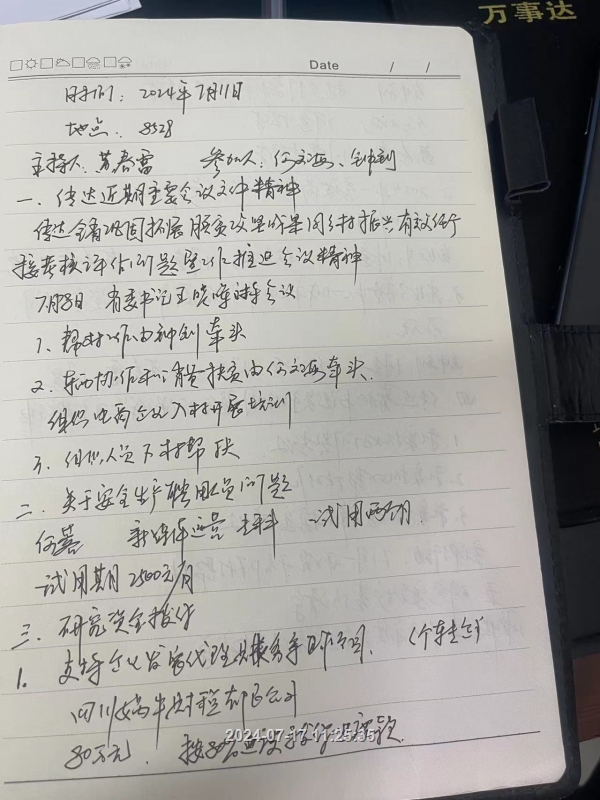 万事达
Date / /
时间：2024年7月11日
地点：8328
主持人：黄春雷 参加人：何文海、钟钊
一、传达近期重要会议文件精神
传达全省巩固拓展脱贫攻坚成果同乡村振兴有效衔
接考核评估问题整改推进会议精神
7月8日 省委书记王晓晖主持会议
1、帮扶工作由钟钊牵头
2、东西协作和消费扶贫由何文海牵头.
组织电商企业入村开展培训
3、组织人员下村帮扶
二、关于安全生产聘用人员问题
何 新媒体运营 试用两个月.
试用期月2500元/月
三、研究资金拨付
1. 支持企业发展代理 项目.
四川 有限公司
80万元. 按80%
2024-07-17 11:25:35